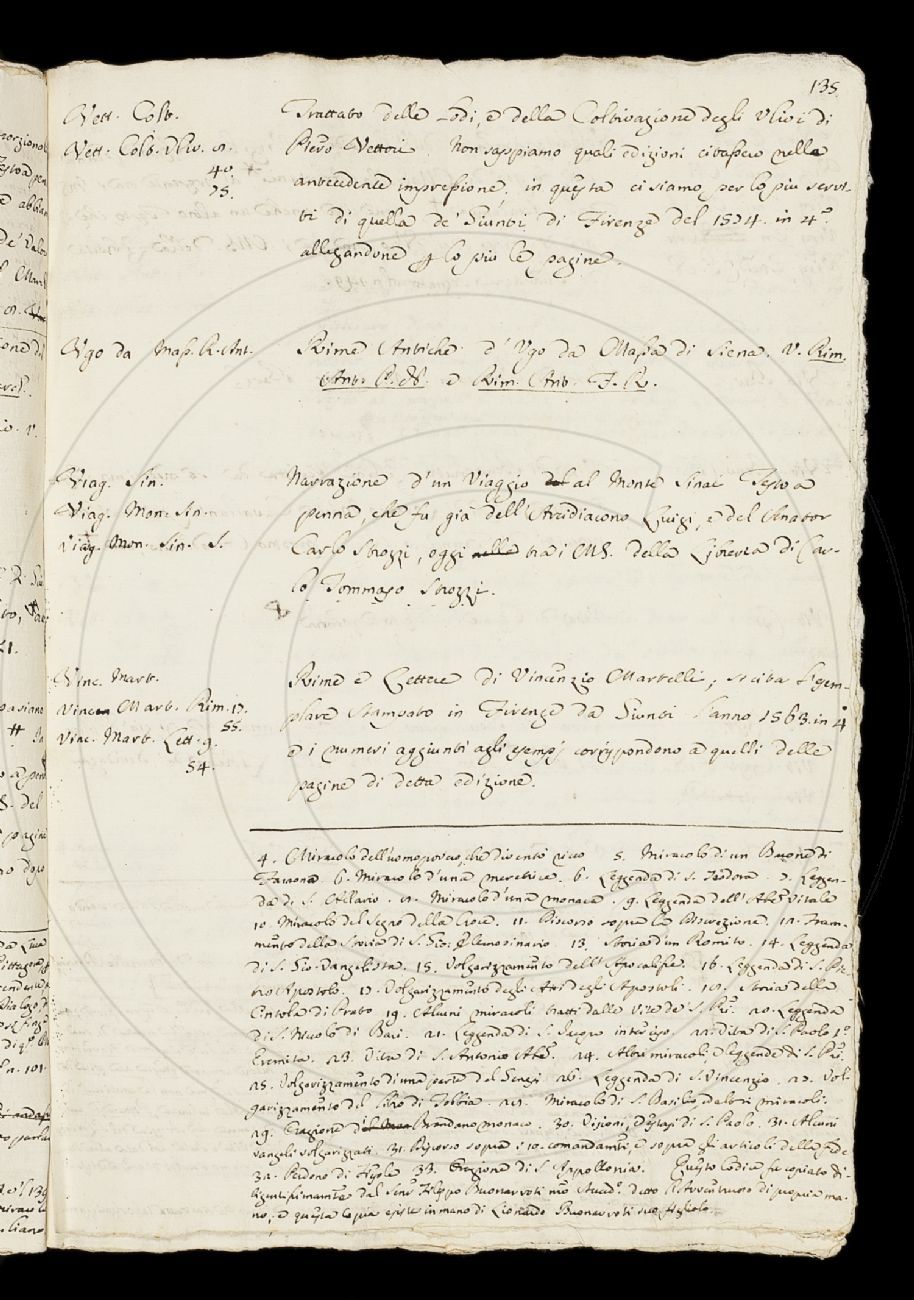 135.
Vett. Colt.
Vett. Colt. Uliv. 8.
40.
75.
Trattato delle Lodi, e della Coltivazione degli Ulivi di
Piero Vettori. Non sappiamo quali edizioni citassero nella
antecedente impressione, in questa ci siamo per lo più servi-
ti di quella de' Giunti di Firenze del 1574. in 4º
allegandone p lo più le pagine.
Ugo da Mass. R. Ant.
Rime Antiche d'Ugo da Massa di Siena. V. Rim.
Ant. P. N. e Rim. Ant. F. R.
Viag. Sin.
Viag. Mont. Sin.
Viag. Mon. Sin. S.
Narrazione d'un Viaggio del al Monte Sinai Testo a
penna, che fu già dell'Arcidiacono Luigi, e del Senator
Carlo Strozzi, oggi nella tra i MS. della Libreria di Car-
lo Tommaso Strozzi.
Vinc. Mart.
Vincen Mart. Rim. 17.
55.
Vinc. Mart. Lett. 9.
54.
Rime e Lettere di Vincenzio Martelli, si cita l'esem-
plare stampato in Firenze da Giunti l'anno 1563. in 4º
e i numeri aggiunti agli esempj corrispondono a quelli delle
pagine di detta edizione.
4. Miracolo dell'uomo povero, che diventò ricco 5. Miracolo di un Barone di
Faraona. 6. Miracolo d'una meretrice. 6. Leggenda di S. Teodora. 7. Leggen-
da di S. Ellario. 8. Miracolo d'una monaca. 9. Leggenda dell'Abe Vitale
10. Miracolo del Segno della Croce. 11. Discorso sopra la Discrezione. 12. Fram-
mento della Storia di S. Gio: Elemosinario 13. Storia d'un Romito. 14. Leggenda
di S. Gio. Vangelista. 15. Volgarizzamento dell'Apocalisse. 16. Leggenda di S. Pie-
tro Apostolo. 17. Volgarizzamento degli Atti degli Apostoli. 18. Storia della
Cintola di Prato 19. Alcuni miracoli tratti dalle Vite de' S. Pri. 20. Leggenda
di S. Niccolò di Bari. 21. Leggenda di S. Jacopo interciso. 22. Vita di S. Paolo 1º
Eremita. 23. Vita di S. Antonio Abe. 24. Altri miracoli, e leggende di S. Pri.
25. Volgarizzamento di una parte del Genesi 26. Leggenda di S. Vincenzio. 27. Vol-
garizzamento del libro di Tobbia. 28. Miracolo di S. Basilio, ed altri miracoli.
29. Orazione di Brandano monaco. 30. Visioni, d'estasi di S. Paolo. 31. Alcuni
vangeli volgarizzati. 31. Discorso sopra i 10. comandamti, e sopra gli articoli della fede
32. Perdono di Ascoli. 33. Orazione di S. Appollonia. Questo Codice fu copiato di-
ligentissimamente dal Senr Filippo Buonarroti nro Accadº. detto di propria ma-
no, e questa copia esiste in mano di Lionardo Buonarroti suo figliolo.